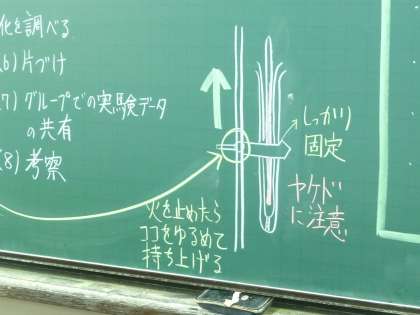 化を調べる
(6) 片づけ
(7) グループでの実験データ
の共有
(8) 考察
しっかり
固定
ヤケド
に注意
火を止めたら
ココをゆるめて
持ち上げる